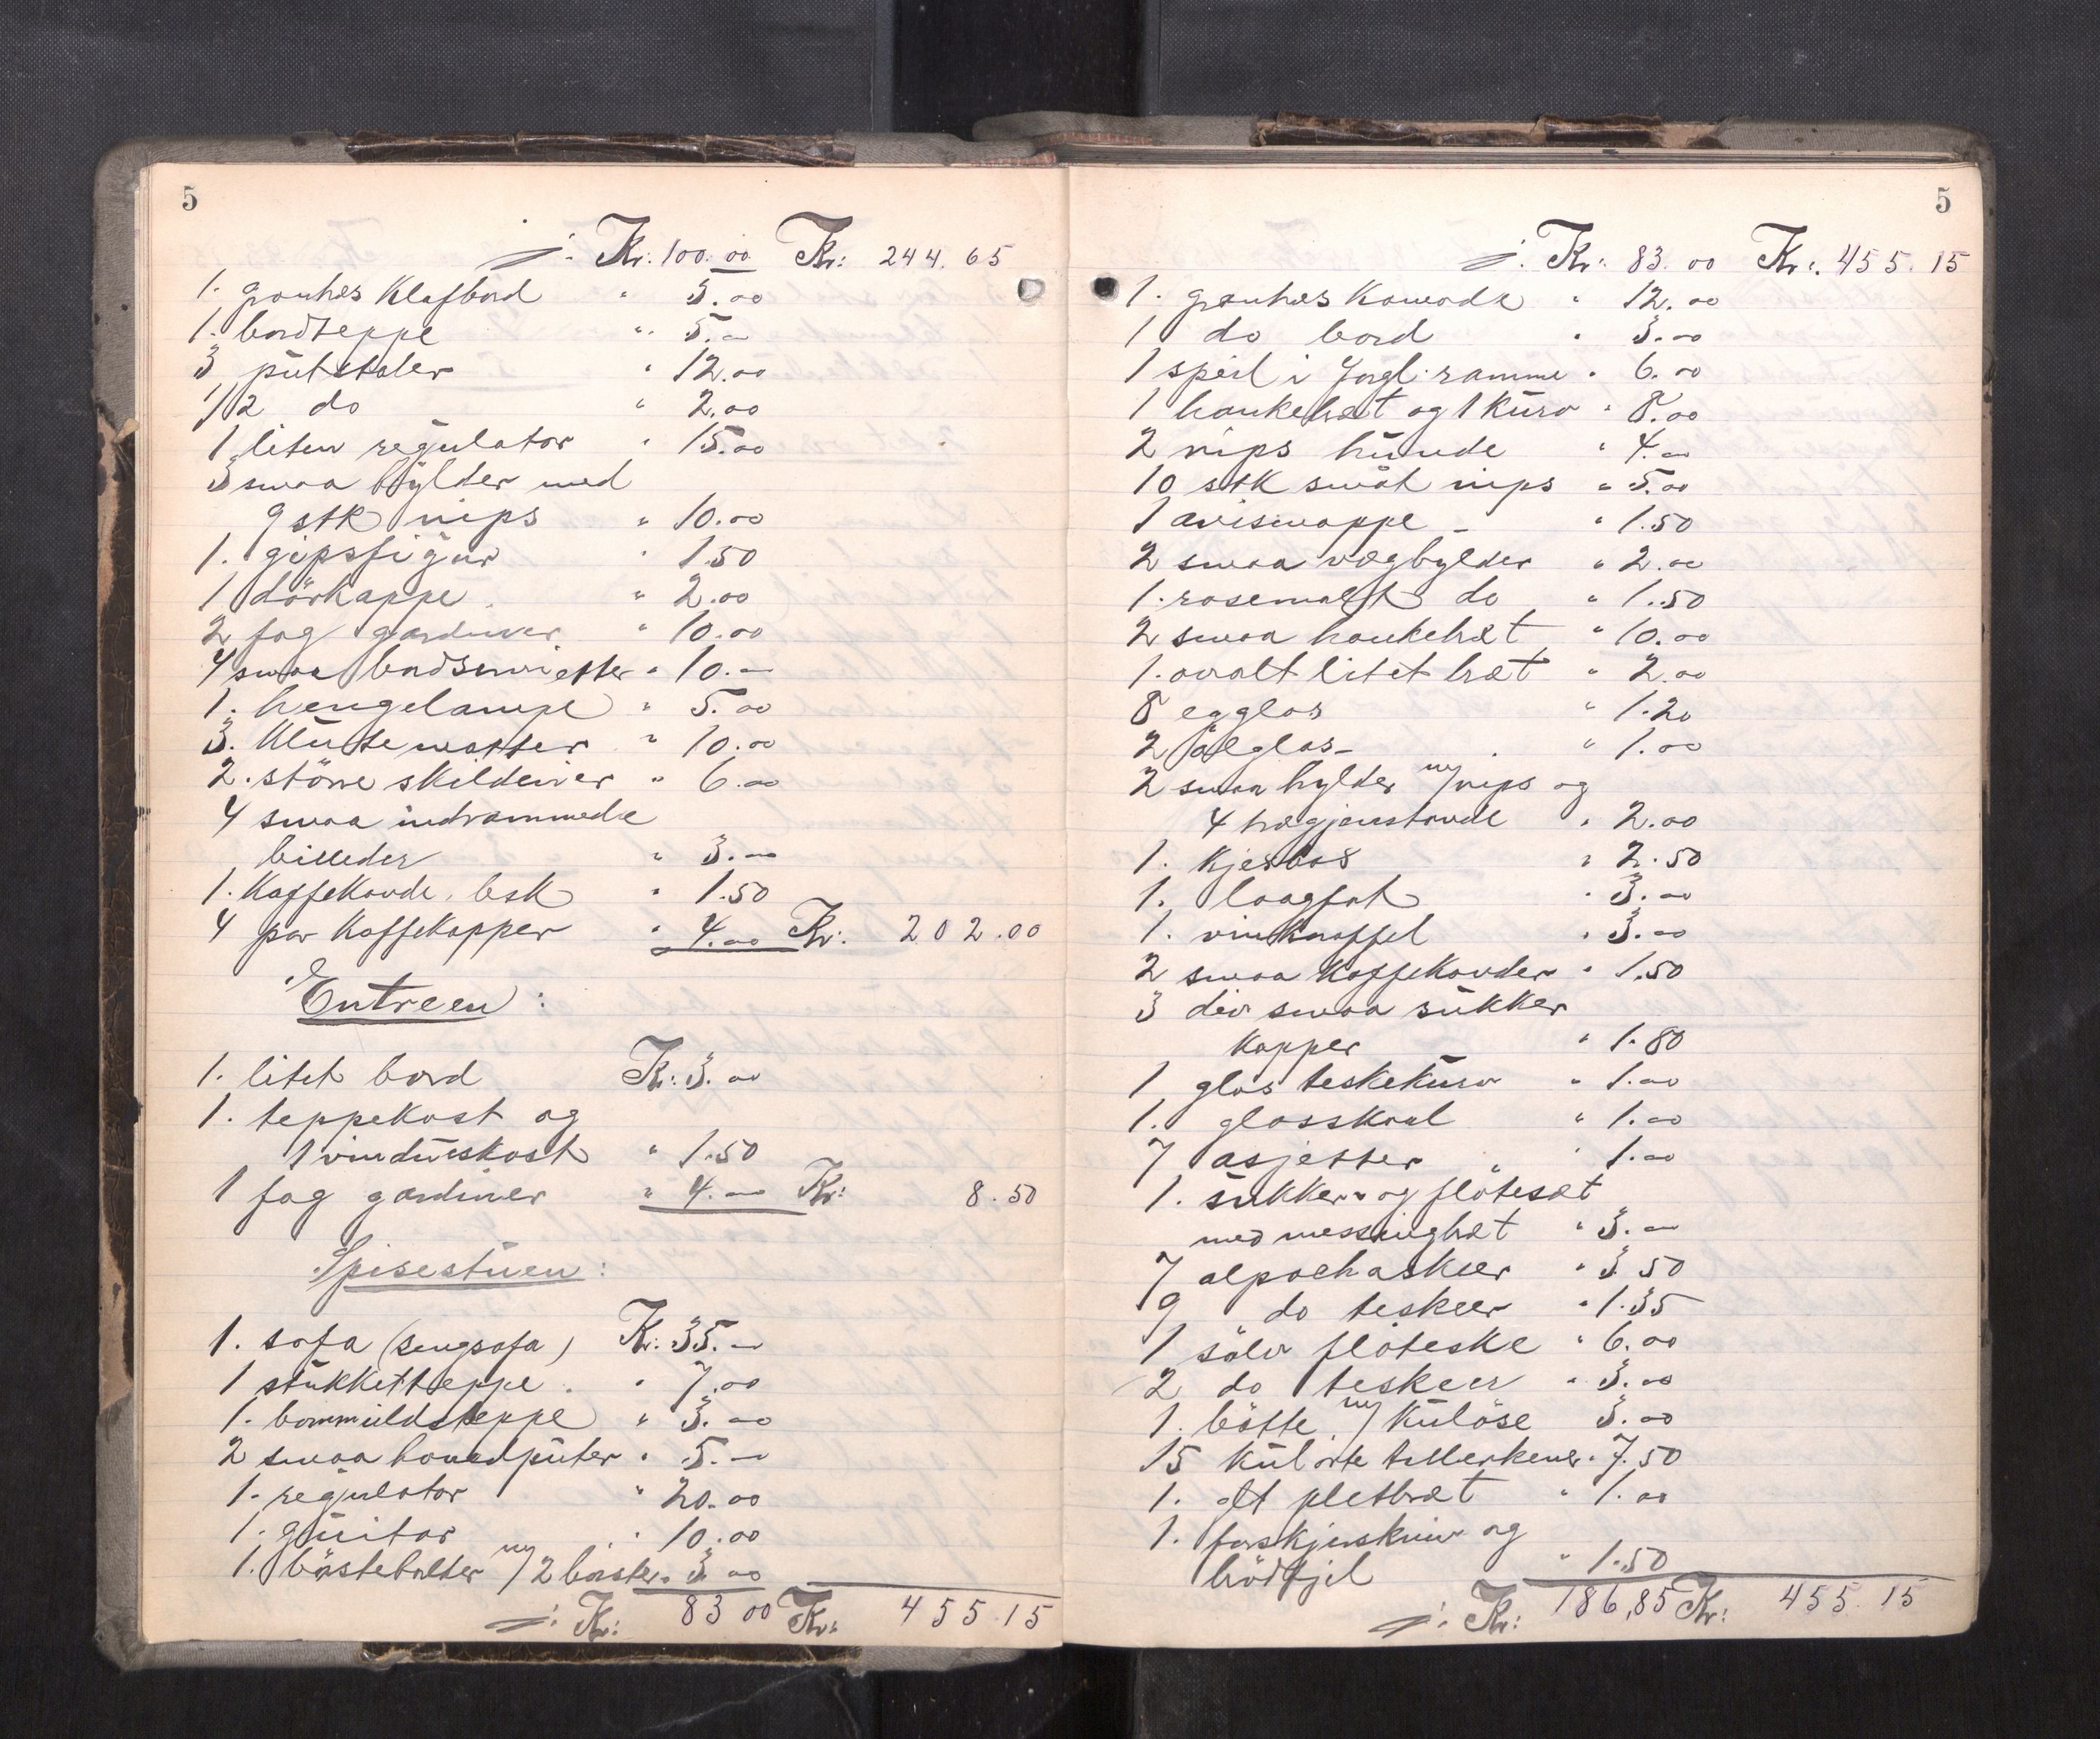 5
Kr. 100.00 Kr: 244.65
1. granhes Klafbord " 5.00
1. bordteppe " 5.—
3 putstoler " 12.00
1/2 do " 2.00
1 liten regulator " 15.00
3 smaa hylder med
9 stk nips " 10.00
1. gipsfigur " 1.50
1 dörkappe " 2.00
2 fag gardiner " 10.00
4 smaa bordservietter " 10.—
1. hengelampe " 5.00
3. klütematter " 10.00
2. större skilderier " 6.00
4 smaa indrammede
billeder " 3.—
1. Kaffekande, besk " 1.50
4 par Kaffekopper " 4.00 Kr: 202.00
Entreen:
1. litet bord Kr: 3.00
1. teppekost og
1 vindüskost " 1.50
1 fag gardiner " 4.— Kr: 8.50
Spisestüen:
1. sofa (sengsofa) Kr: 35.—
1 stükketteppe " 7.00
1. bommüldsteppe " 3.00
2 smaa hovedpüter " 5.—
1. regulator " 20.00
1. güitar " 10.00
1. börsteholder m/2 börster " 3.00
Kr: 83 00 Kr: 455.15
5
Kr: 83.00 Kr: 455.15
1. granhes Komode " 12.00
1 do bord " 3.00
1 speil i forgl. ramme " 6.00
1 hankebret og 1 Kürv " 8.00
2 nips hünde " 4.—
10 stk småt nips " 5.00
1 avismappe — " 1.50
2 smaa væghylder " 2.00
1. rosemalt do " 1.50
2 smaa hankebræt " 10.00
1. ovalt litet bræt " 2.00
8 egglas " 1.20
2 ölglas — " 1.00
2 smaa hylder m/nips og
4 trægjenstande " 2.00
1. Kjeksbos " 2.50
1. laagfat " 3.00
1. vinkaraffel " 3.00
2 smaa Kaffekander " 1.50
3 div smaa sükker
Kopper " 1.80
1 glas teskekürv " 1.00
1. glasskaal " 1.00
7 asjetter " 1.00
1. sükker og flötesæt
med messingbræt " 3.—
7 alpachaskeer " 3 50
9 do teskeer " 1.35
1 sölv flöteske " 6.00
2 do teskeer " 3.00
1. bötte m/külöse 3.00
15 külörte tallerkener " 7.50
1. dt pletbræt " 1.00
1. forskjærskniv og
brödfjel " 1.50
Kr: 186,85 Kr: 455.15